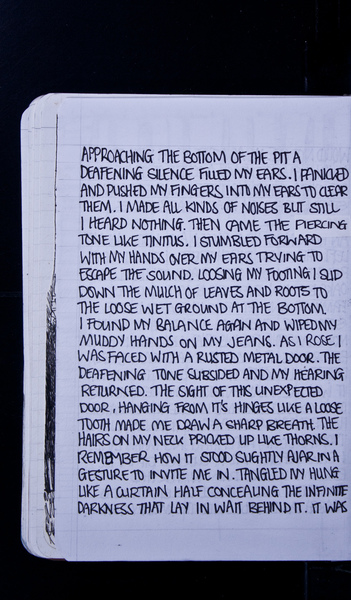 APPROACHING THE BOTTOM OF THE PIT A
DEAFENING SILENCE FILLED MY EARS. I PANICKED
AND PUSHED MY FINGERS INTO MY EARS TO CLEAR
THEM. I MADE ALL KINDS OF NOISES BUT STILL
I HEARD NOTHING. THEN CAME THE PIERCING
TONE LIKE TINITUS. I STUMBLED FORWARD
WITH MY HANDS OVER MY EARS TRYING TO
ESCAPE THE SOUND. LOOSING MY FOOTING I SLID
DOWN THE MULCH OF LEAVES AND ROOTS TO
THE LOOSE WET GROUND AT THE BOTTOM.
I FOUND MY BALANCE AGAIN AND WIPED MY
MUDDY HANDS ON MY JEANS. AS I ROSE I
WAS FACED WITH A RUSTED METAL DOOR. THE
DEAFENING TONE SUBSIDED AND MY HEARING
RETURNED. THE SIGHT OF THIS UNEXPECTED
DOOR, HANGING FROM IT'S HINGES LIKE A LOOSE
TOOTH MADE ME DRAW A SHARP BREATH. THE
HAIRS ON MY NECK PRICKED UP LIKE THORNS. I
REMEMBER HOW IT STOOD SLIGHTLY AJAR IN A
GESTURE TO INVITE ME IN. TANGLED IVY HUNG
LIKE A CURTAIN HALF CONCEALING THE INFINITE
DARKNESS THAT LAY IN WAIT BEHIND IT. IT WAS